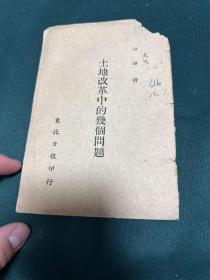 任弼時
土地改革中的幾個問題
東北日報印行